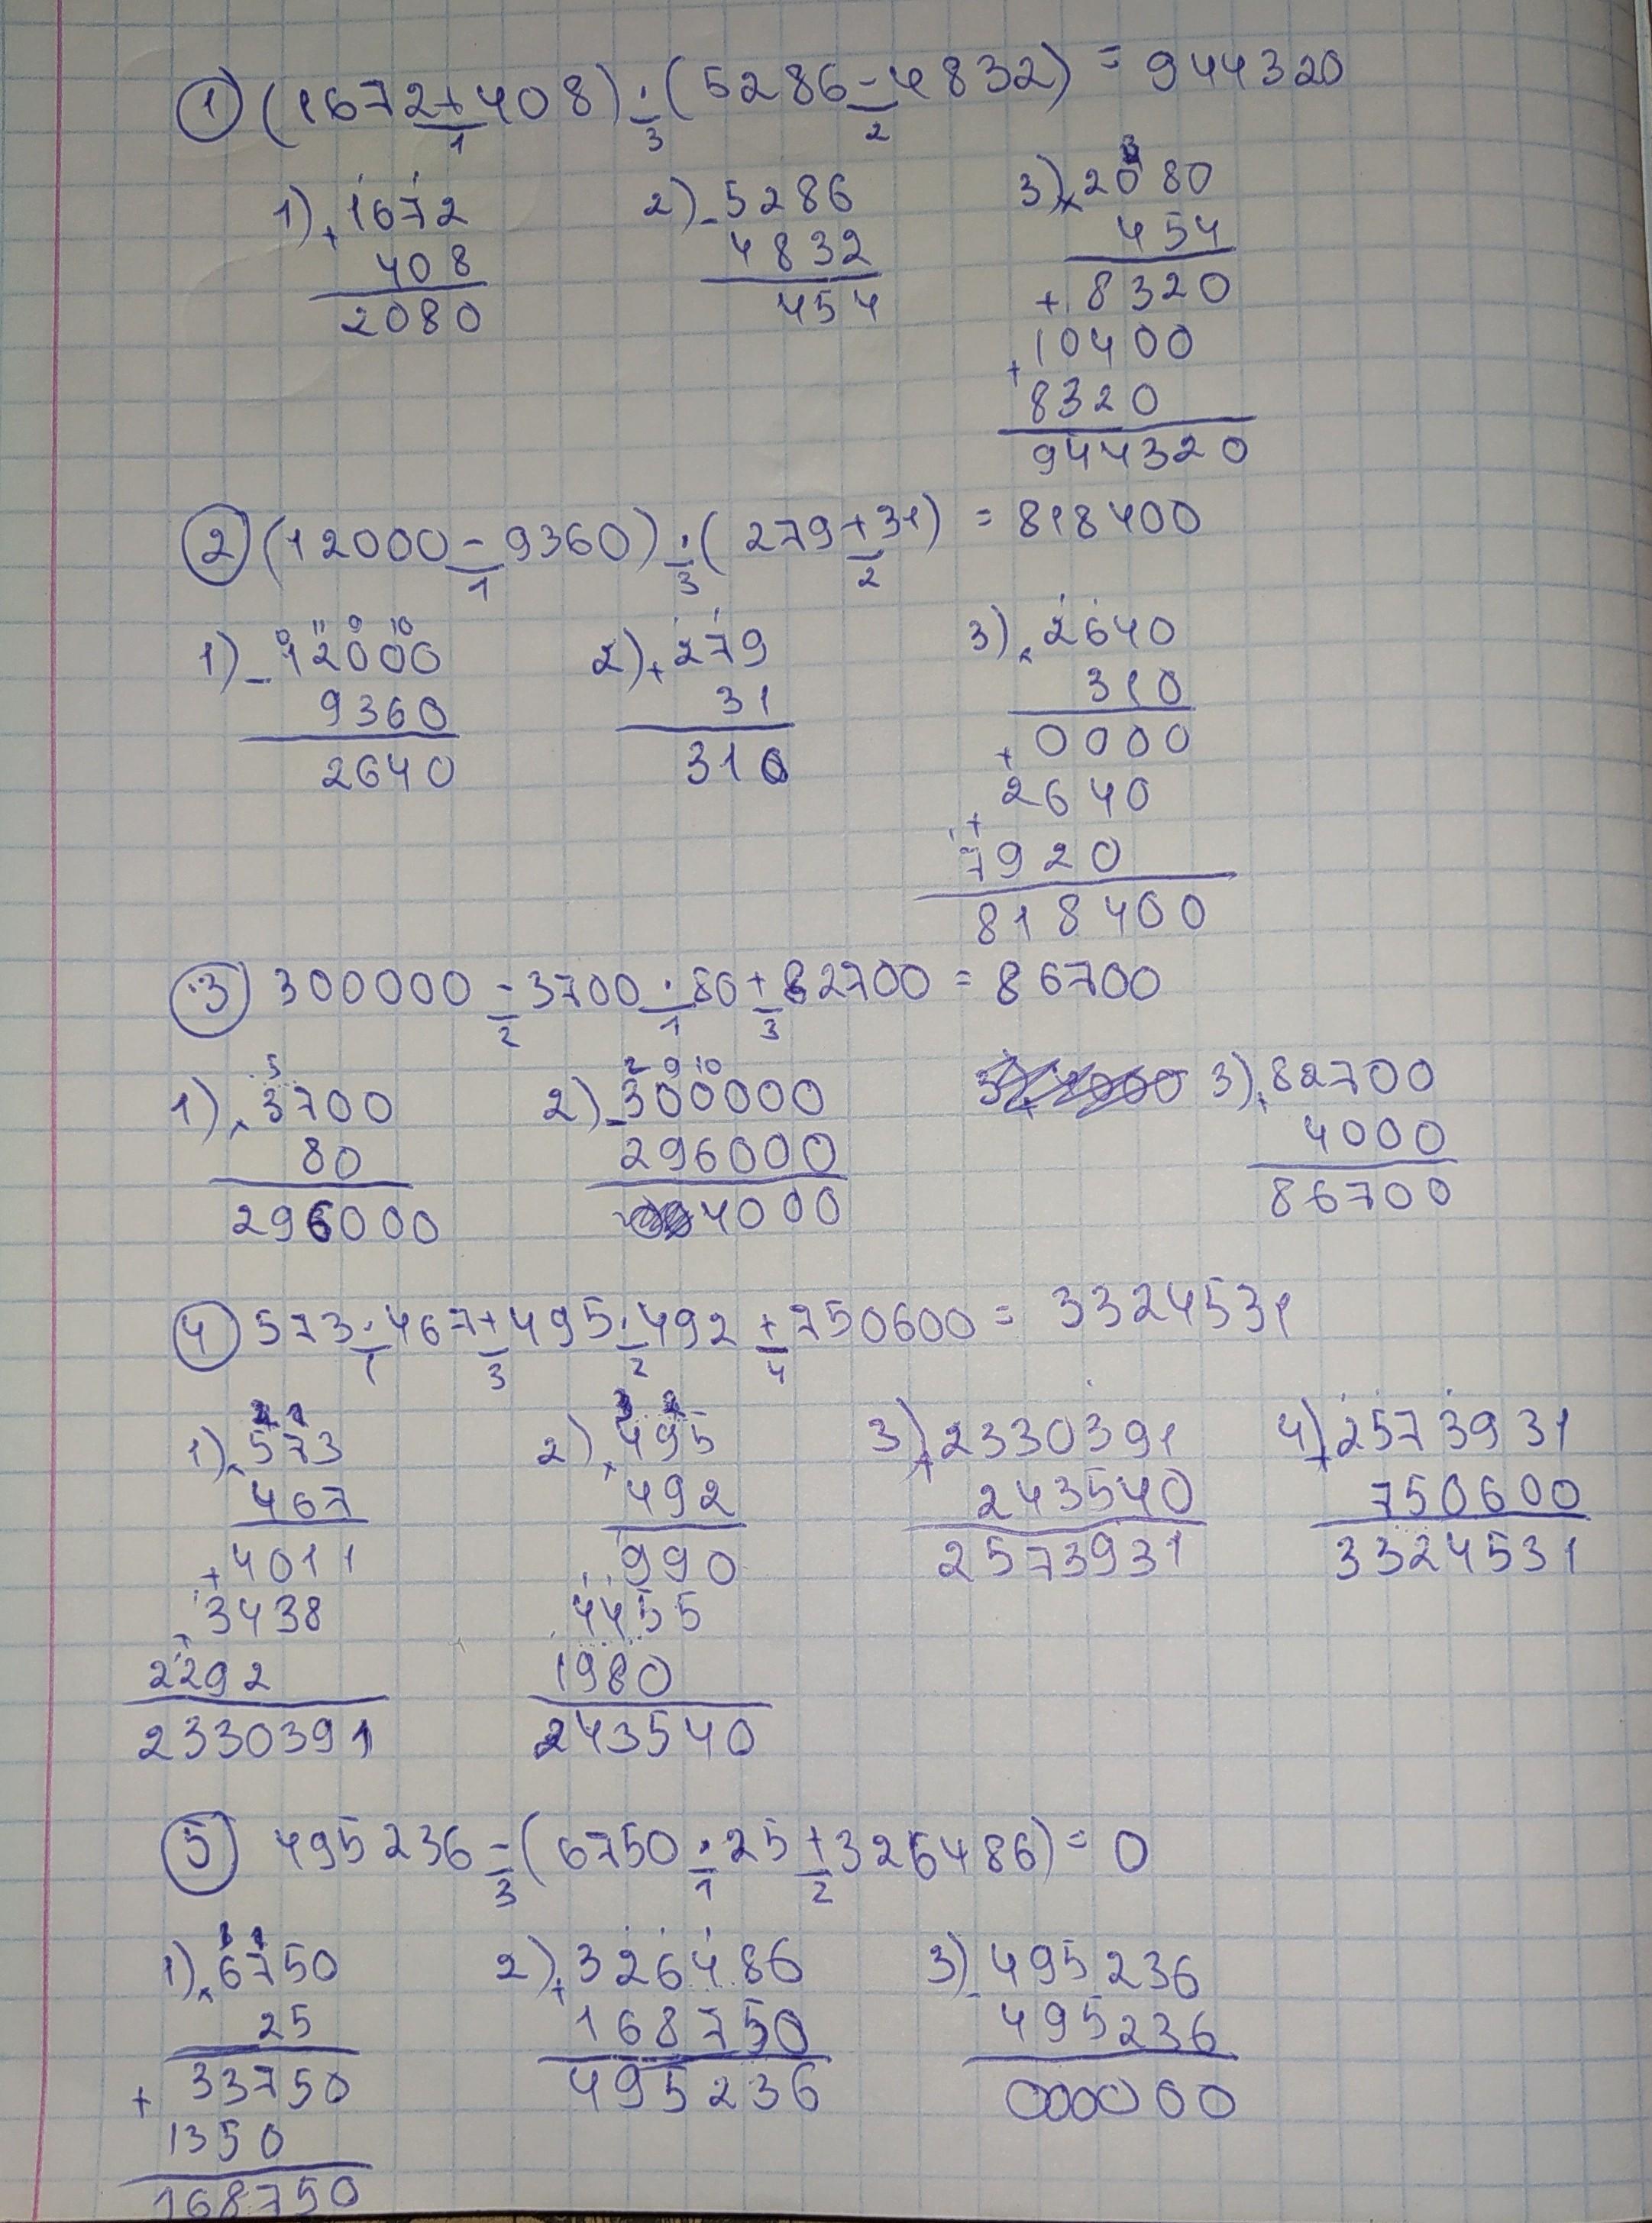 ① (1672+408)·(5286-4832) = 944320
1 3 2
1) +1672 2) -5286 3) ×2080
408 4832 454
2080 454 +8320
+10400
8320
944320
② (12000-9360)·(279+31) = 818400
1 3 2
0 11 9 10
1) -12000 2) +279 3) ×2640
9360 31 310
2640 310 +0000
+2640
7920
818400
③ 300000-3700·80+82700 = 86700
2 1 3
5 2 9 10
1) ×3700 2) -300000 3) +82700
80 296000 4000
296000 4000 86700
④ 573·467+495·492+750600 = 3324531
1 3 2 4
1) ×573 2) ×495 3) +2330391 4) +2573931
467 492 243540 750600
+4011 990 2573931 3324531
+3438 4455
2292 1980
2330391 243540
⑤ 495236-(6750·25+326486)=0
3 1 2
1) ×6750 2) +326486 3) -495236
25 168750 495236
+33750 495236 000000
1350
168750